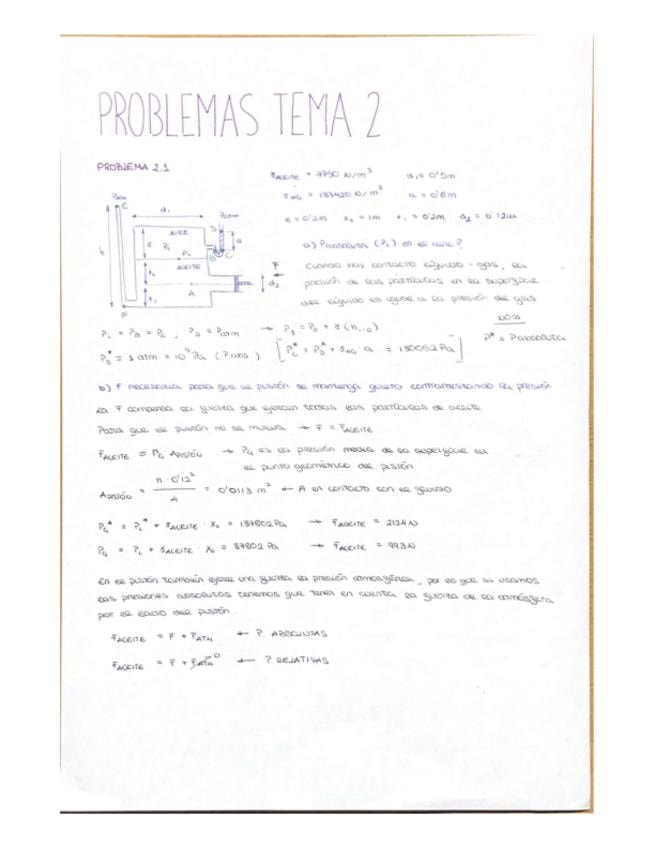 PROBLEMAS TEMA 2
PROBLEMA 2.1
γACEITE = 7750 N/m³ d₁ = 0'5m
γHG = 133420 N/m³ a = 0'6m
e = 0'2m x₀ = 1m x₁ = 0'2m d₂ = 0'12m
Patm
E
d₁
Patm
AIRE
D
e
P₁
a
h
PL
B
C
ACEITE
x₀
F
d₂
A
x₁
F
a) Pabsoluta (PL) en el aire?
Cuando hay contacto líquido - gas, la
presión de las partículas en la superficie
del líquido es igual a la presión del gas
NOTA
P* = Pabsoluta
PL = PB = PC , PD = Patm → 
PD* = 1 atm = 10⁵ Pa (Pabs) [PC* = PD* + γHG · a = 180052 Pa]
b) F necesaria para que el pistón se mantenga quieto contrarrestando la presión
La F compensa la fuerza que ejercen todas las partículas de aceite
Para que el pistón no se mueva → F = FACEITE
FACEITE = PG APISTÓN → PG es la presión media de la superficie en
el punto geométrico del pistón
APISTÓN = π · 0'12² / 4 = 0'0113 m² ← A en contacto con el fluido
PG* = PL* + γACEITE · x₀ = 187802 Pa → FACEITE = 2124 N
PG = PL + γACEITE · x₀ = 87802 Pa → FACEITE = 993 N
En el pistón también ejerce una fuerza la presión atmosférica, por lo que si usamos
las presiones absolutas tenemos que tener en cuenta la fuerza de la atmósfera
por el lado del pistón.
FACEITE = F + FATM ← P ABSOLUTAS
FACEITE = F + FATM⁰ ← P RELATIVAS